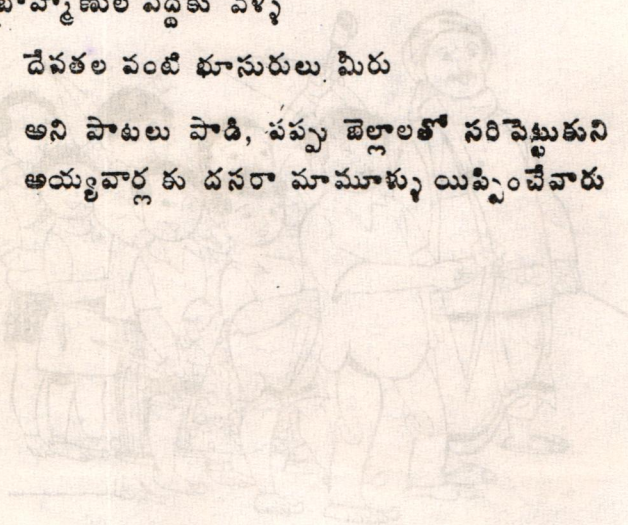 బ్రాహ్మణుల వద్దకు వెళ్ళి
దేవతల వంటి భూసురులు మీరు
అని పాటలు పాడి, పప్పు బెల్లాలతో సరిపెట్టుకుని
అయ్యవార్ల కు దసరా మామూళ్ళు యిప్పించేవారు